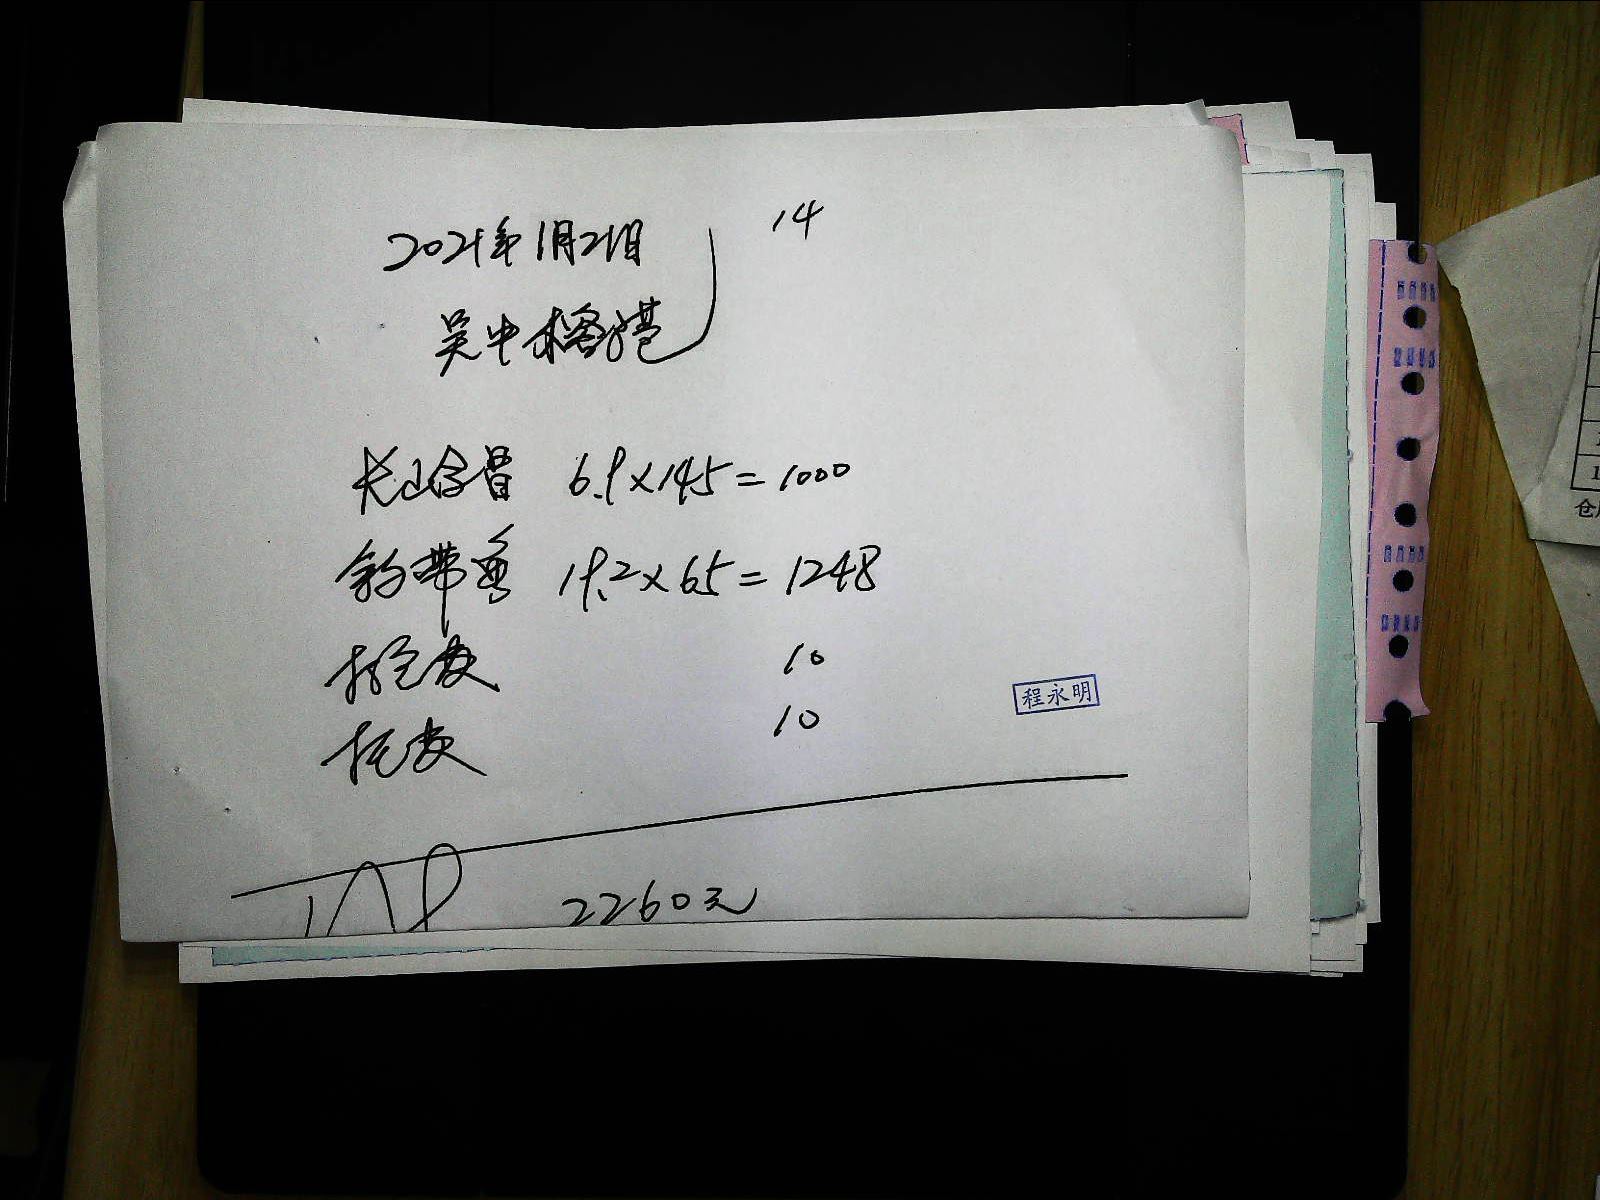 2021年1月21日
14
吴中
6.9×145=1000
钓带鱼 19.2×65=1248
打包费 10
托费 10
程永明
2260元